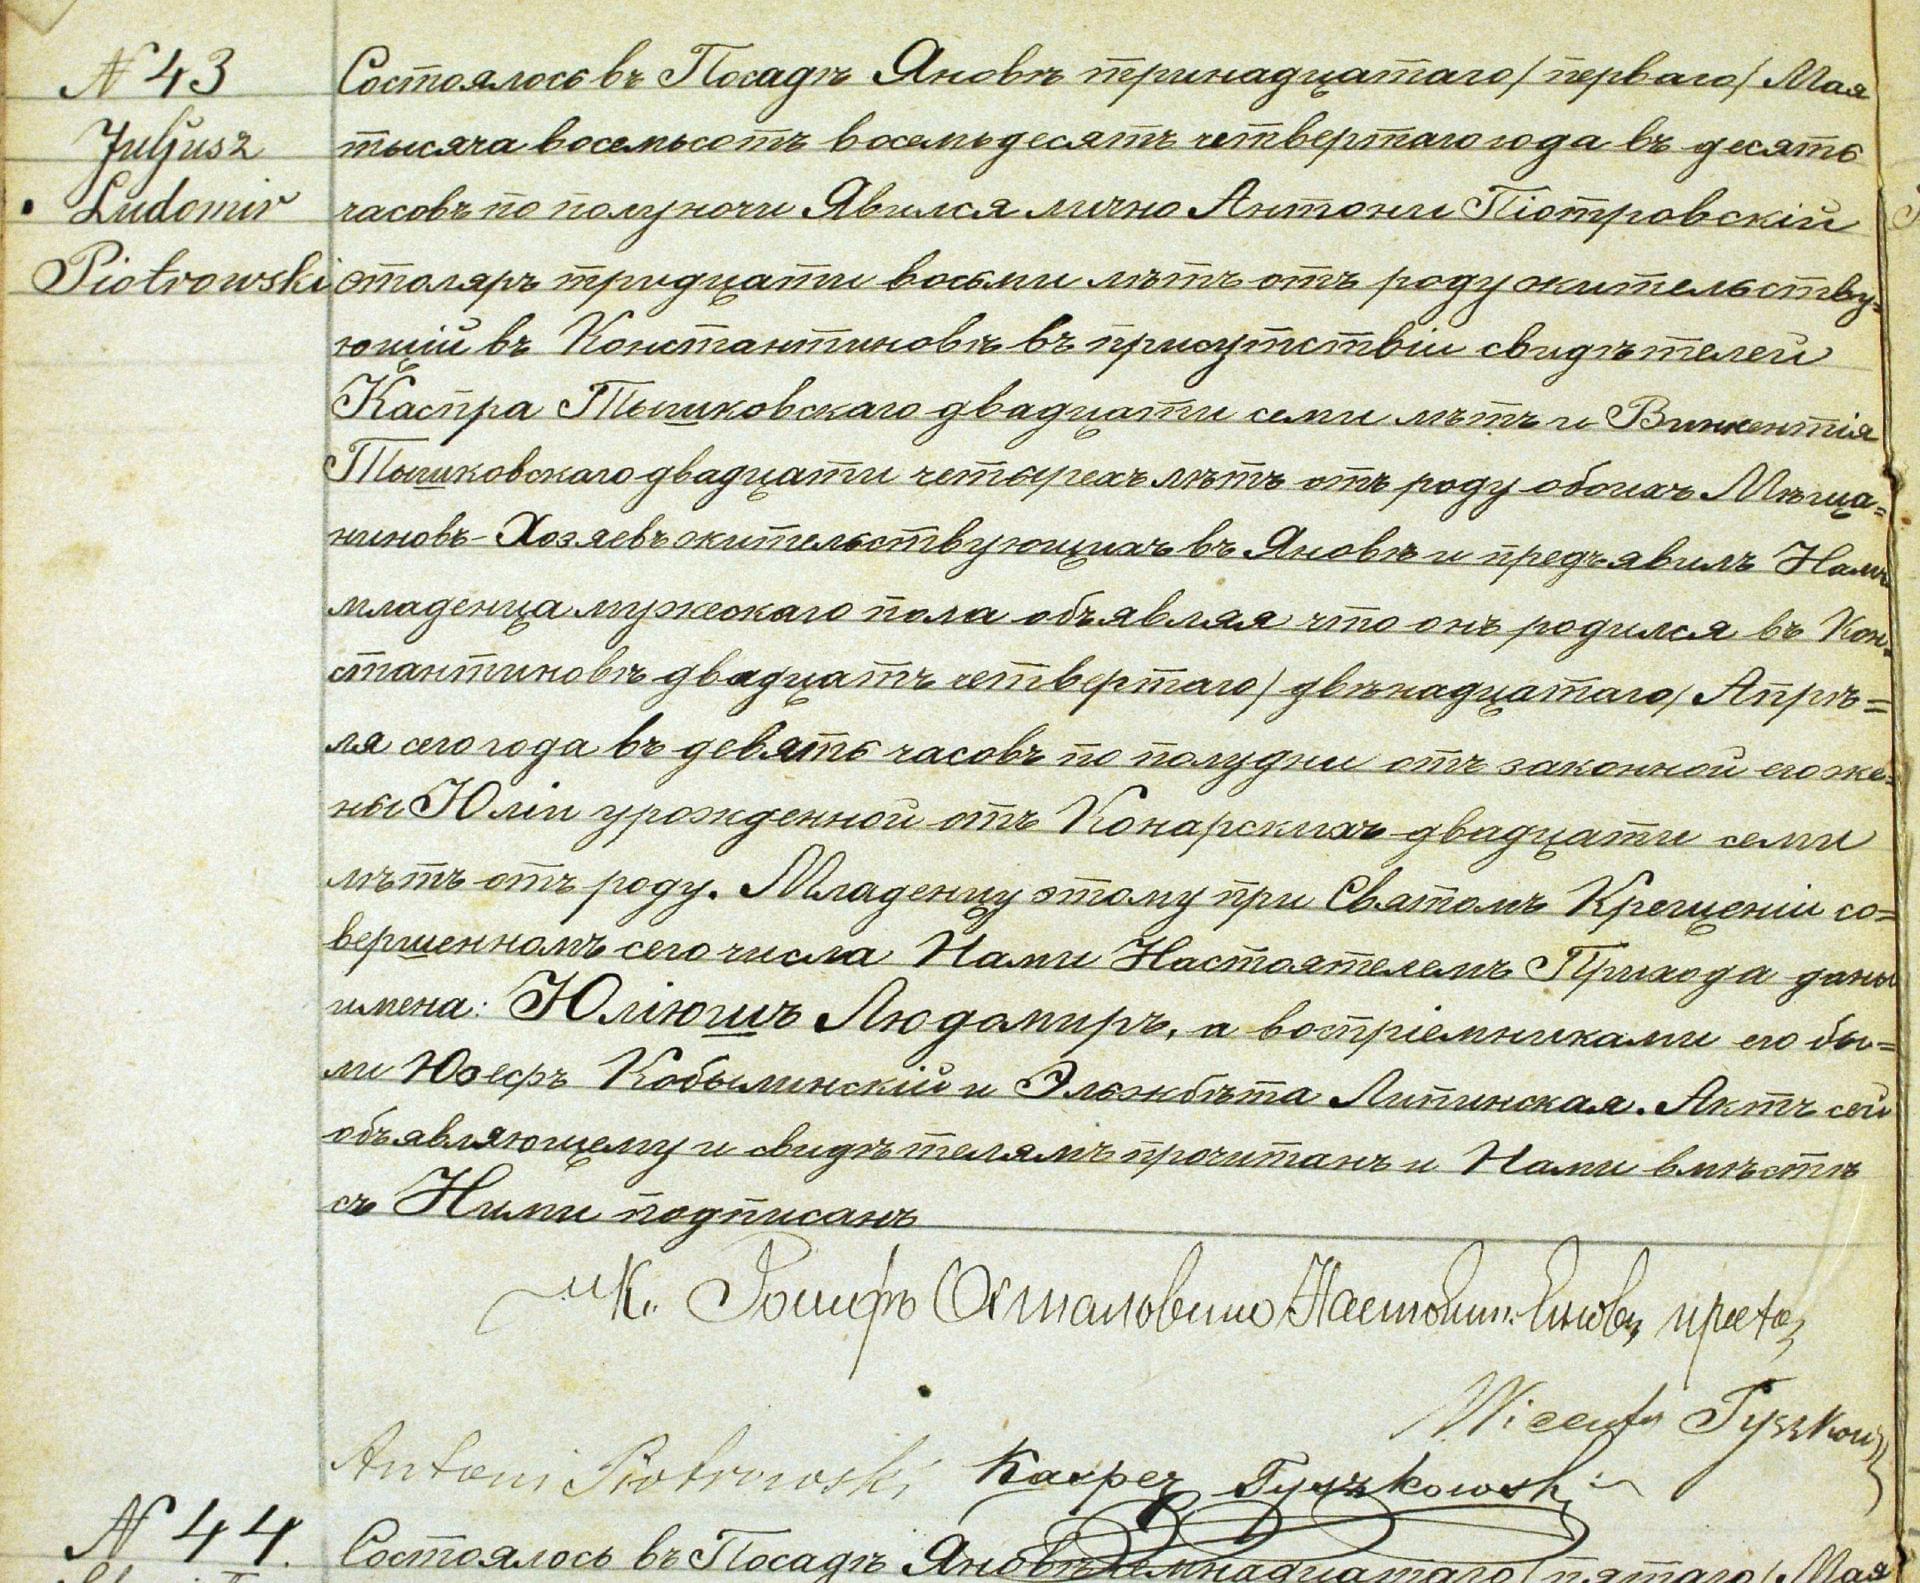 N 43
Juljusz
Ludomir
Piotrowski
Состоялось въ Посадѣ Яновѣ тринадцатаго / перваго / Мая
тысяча восемьсотъ восемьдесятъ четвертаго года въ десять
часовъ по полуночи Явился лично Антони Піотровскій
столяръ тридцати восьми лѣтъ отъ роду жительству=
ющій въ Константиновѣ въ присутствіи свидѣтелей
Каспра Тышковскаго двадцати семи лѣтъ и Винкентія
Тышковскаго двадцати четырехъ лѣтъ отъ роду обоихъ Мѣща=
ниновъ-Хозяевъ жительствующихъ въ Яновѣ и предъявилъ Намъ
младенца мужескаго пола объявляя что онъ родился въ Кон=
стантиновѣ двадцатъ четвертаго / двѣнадцатаго / Апрѣ=
ля сего года въ девять часовъ по полудни отъ законной его же=
ны Юліи урожденной отъ Конарскихъ двадцати семи
лѣтъ отъ роду. Младенцу этому при Святомъ Крещеніи со=
вершенномъ сего числа Нами Настоятелемъ Прихода даны
имена: Юліюшъ Людомиръ, а воспріемниками его бы=
ли Юзефъ Кобылинскій и Эльжбѣта Липинская. Актъ сей
объявляющему и свидѣтелямъ прочитанъ и Нами вмѣстѣ
съ Ними подписанъ
К. Іосифъ
Antoni Piotrowski Kasper Tyszkowski
N 44.
Состоялось въ Посадѣ Яновѣ семнадцатаго / пятаго / Мая